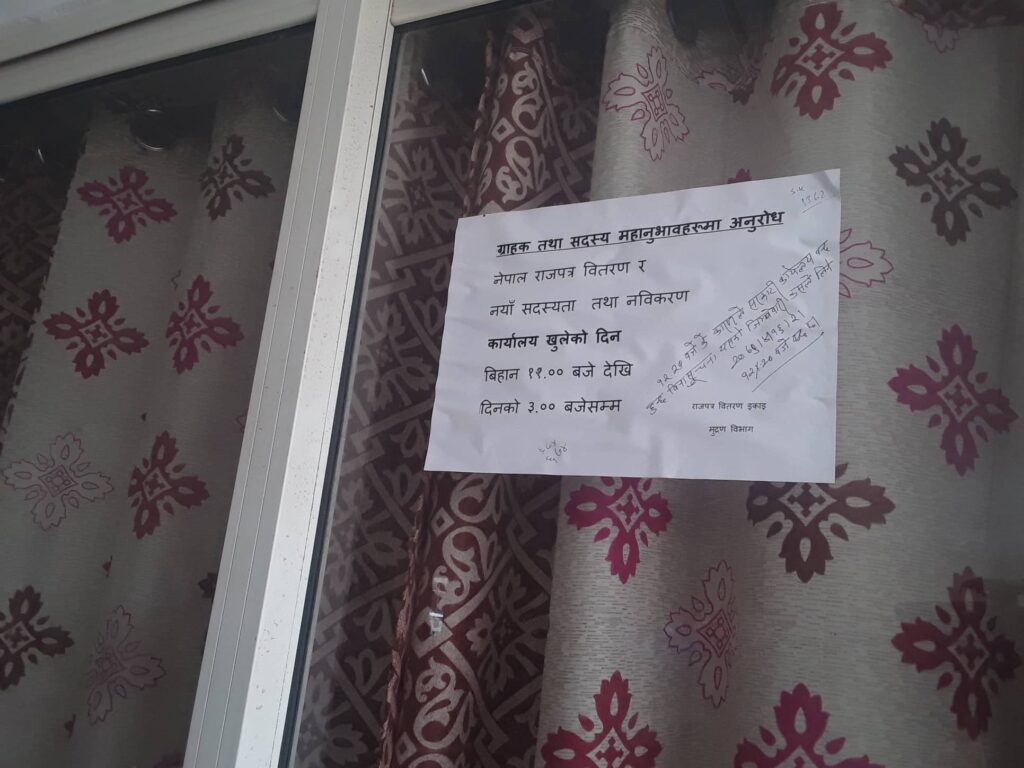 ग्राहक तथा सदस्य महानुभावहरुमा अनुरोध
नेपाल राजपत्र वितरण र
नयाँ सदस्यता तथा नविकरण
कार्यालय खुलेको दिन
बिहान ११.०० बजे देखि
दिनको ३.०० बजेसम्म
१२:२० बजे
कार्यालय बन्द
१२:२० बजे बन्द
राजपत्र वितरण इकाइ
मुद्रण विभाग